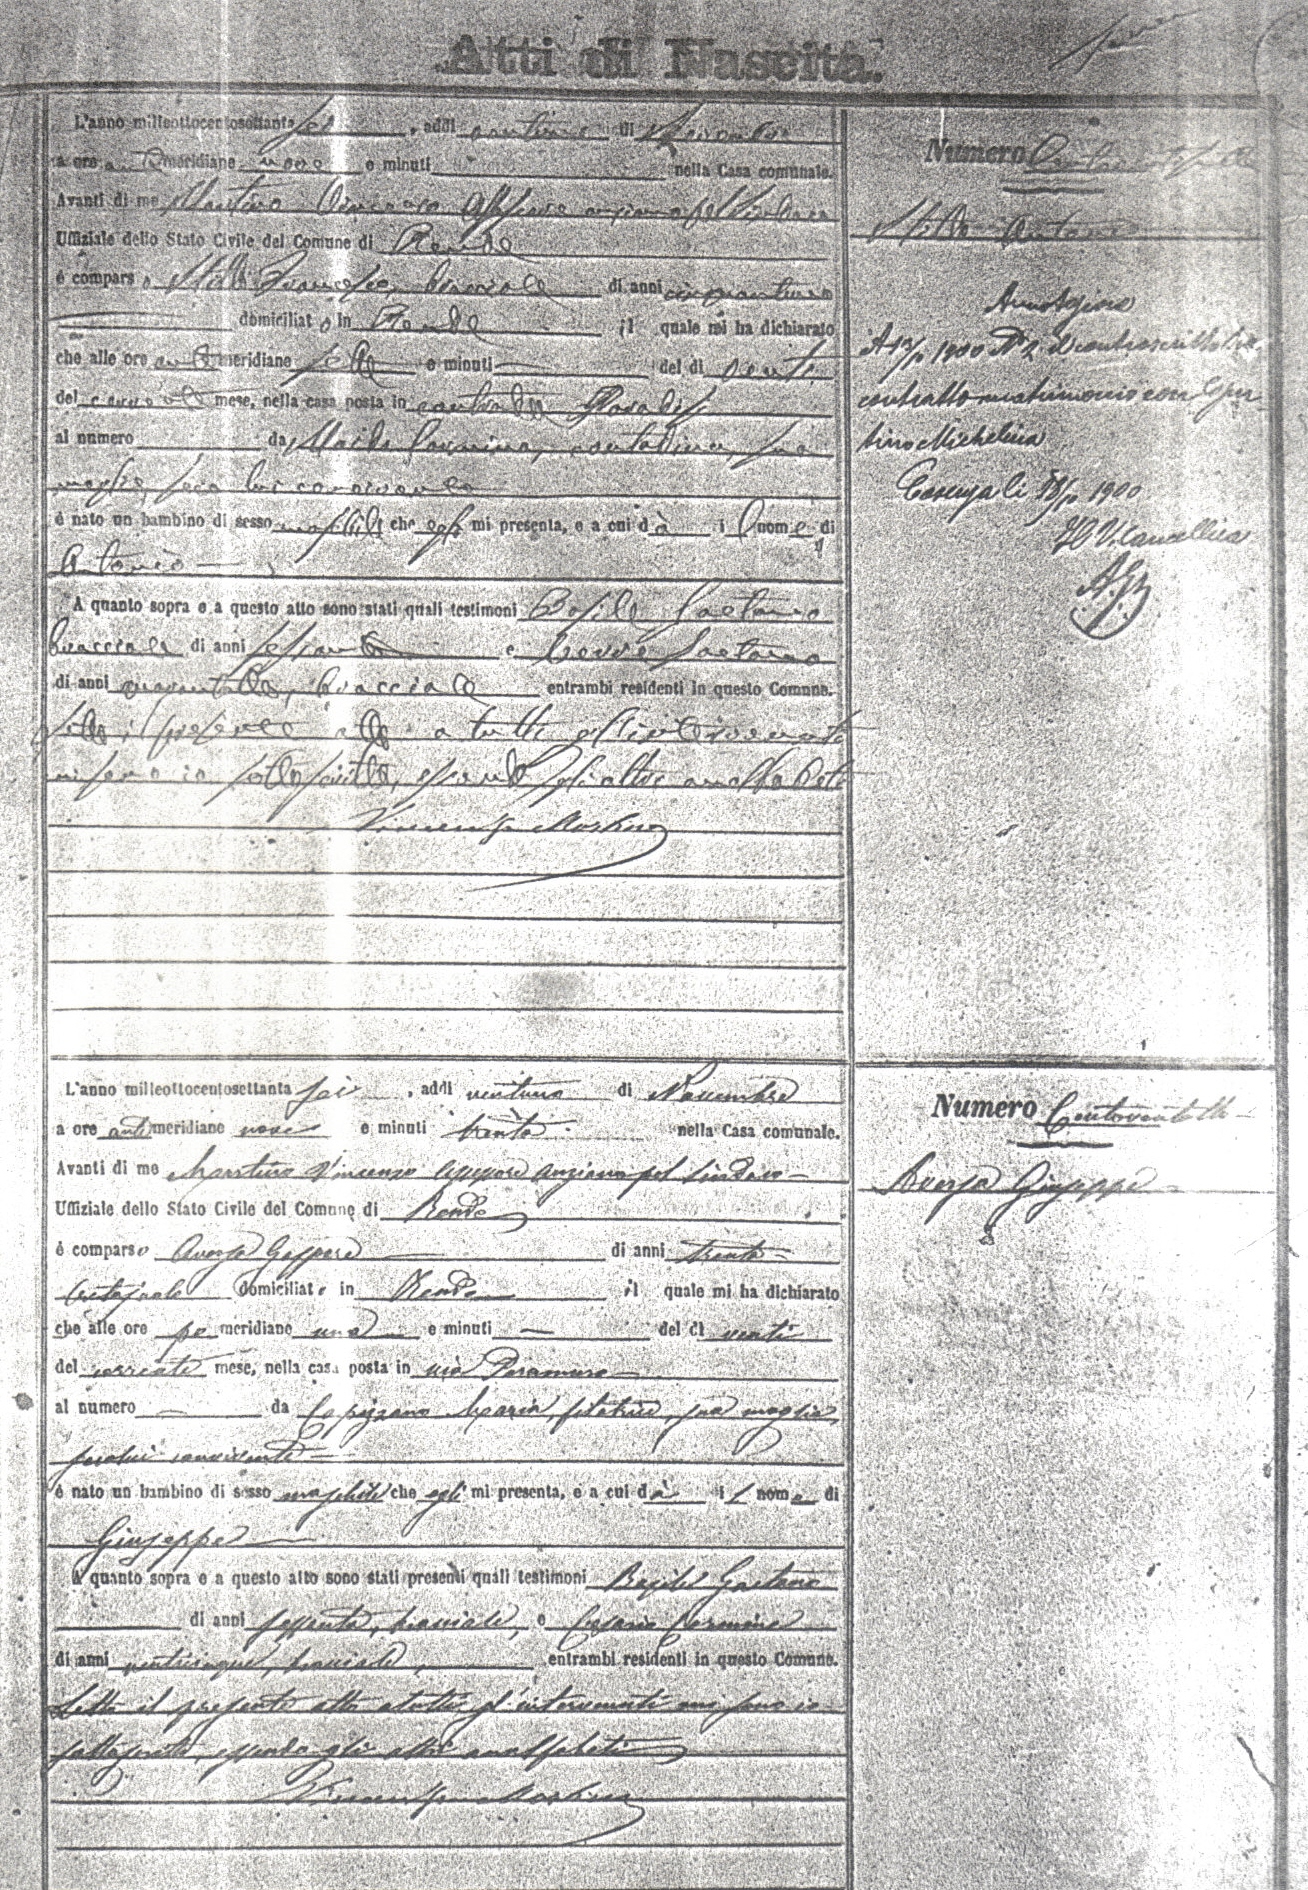 Atti di Nascita.
L'anno milleottocentosettanta sei, addì ventuno di Novembre
a ore antimeridiane nove e minuti nella Casa comunale.
Avanti di me Martino Vincenzo Assessore anziano pel Sindaco
Uffiziale dello Stato Civile del Comune di Rende
è comparso Francesco, bracciale di anni cinquantuno
domiciliato in Rende il quale mi ha dichiarato
che alle ore antimeridiane sette e minuti del dì venti
del corrente mese, nella casa posta in contrada
al numero da Carmina, contadina, sua
moglie, seco lui convivente
è nato un bambino di sesso maschile che egli mi presenta, e a cui dà il nome di
Antonio
A quanto sopra e a questo atto sono stati quali testimoni Basile Gaetano
bracciale di anni sessanta e Gaetano
di anni bracciale entrambi residenti in questo Comune.
Letto il presente atto a tutti gl'intervenuti
si sono io sottoscritto, essendo gli altri analfabeti
Vincenzo Martino
Numero
Antonio
Annotazione
1900 N° 2 Il controscritto ha
contratto matrimonio con
Michelina
Cosenza li 1900
Il V. Cancelliere
L'anno milleottocentosettanta sei, addì ventuno di Novembre
a ore antimeridiane nove e minuti trenta nella Casa comunale.
Avanti di me Martino Vincenzo Assessore anziano pel Sindaco
Uffiziale dello Stato Civile del Comune di Rende
è comparso Aversa Gaspare di anni trenta
domiciliato in Rende il quale mi ha dichiarato
che alle ore pomeridiane una e minuti — del dì venti
del corrente mese, nella casa posta in via
al numero — da Capizzano Maria, filatrice, sua moglie,
secolui convivente
è nato un bambino di sesso maschile che egli mi presenta, e a cui dà il nome di
Giuseppe
A quanto sopra e a questo atto sono stati presenti quali testimoni Basile Gaetano
di anni sessanta, bracciale, e Carmine
di anni venticinque, bracciale, entrambi residenti in questo Comune.
Letto il presente atto a tutti gl'intervenuti si sono io
sottoscritto, essendo gli altri analfabeti
Vincenzo Martino
Numero Centoventotto
Aversa Giuseppe